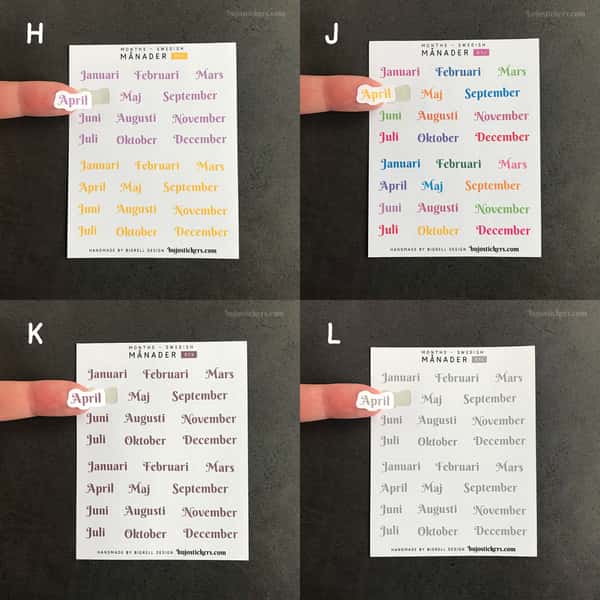 H
bujostickers.com
MONTHS - SWEDISH
MÅNADER
Januari Februari Mars
April Maj September
Juni Augusti November
Juli Oktober December
Januari Februari Mars
April Maj September
Juni Augusti November
Juli Oktober December
HANDMADE BY BIGRELL DESIGN bujostickers.com
J
bujostickers.com
MONTHS - SWEDISH
MÅNADER
Januari Februari Mars
April Maj September
Juni Augusti November
Juli Oktober December
Januari Februari Mars
April Maj September
Juni Augusti November
Juli Oktober December
HANDMADE BY BIGRELL DESIGN bujostickers.com
K
bujostickers.com
MONTHS - SWEDISH
MÅNADER
Januari Februari Mars
April Maj September
Juni Augusti November
Juli Oktober December
Januari Februari Mars
April Maj September
Juni Augusti November
Juli Oktober December
HANDMADE BY BIGRELL DESIGN bujostickers.com
L
bujostickers.com
MONTHS - SWEDISH
MÅNADER
Januari Februari Mars
April Maj September
Juni Augusti November
Juli Oktober December
Januari Februari Mars
April Maj September
Juni Augusti November
Juli Oktober December
HANDMADE BY BIGRELL DESIGN bujostickers.com